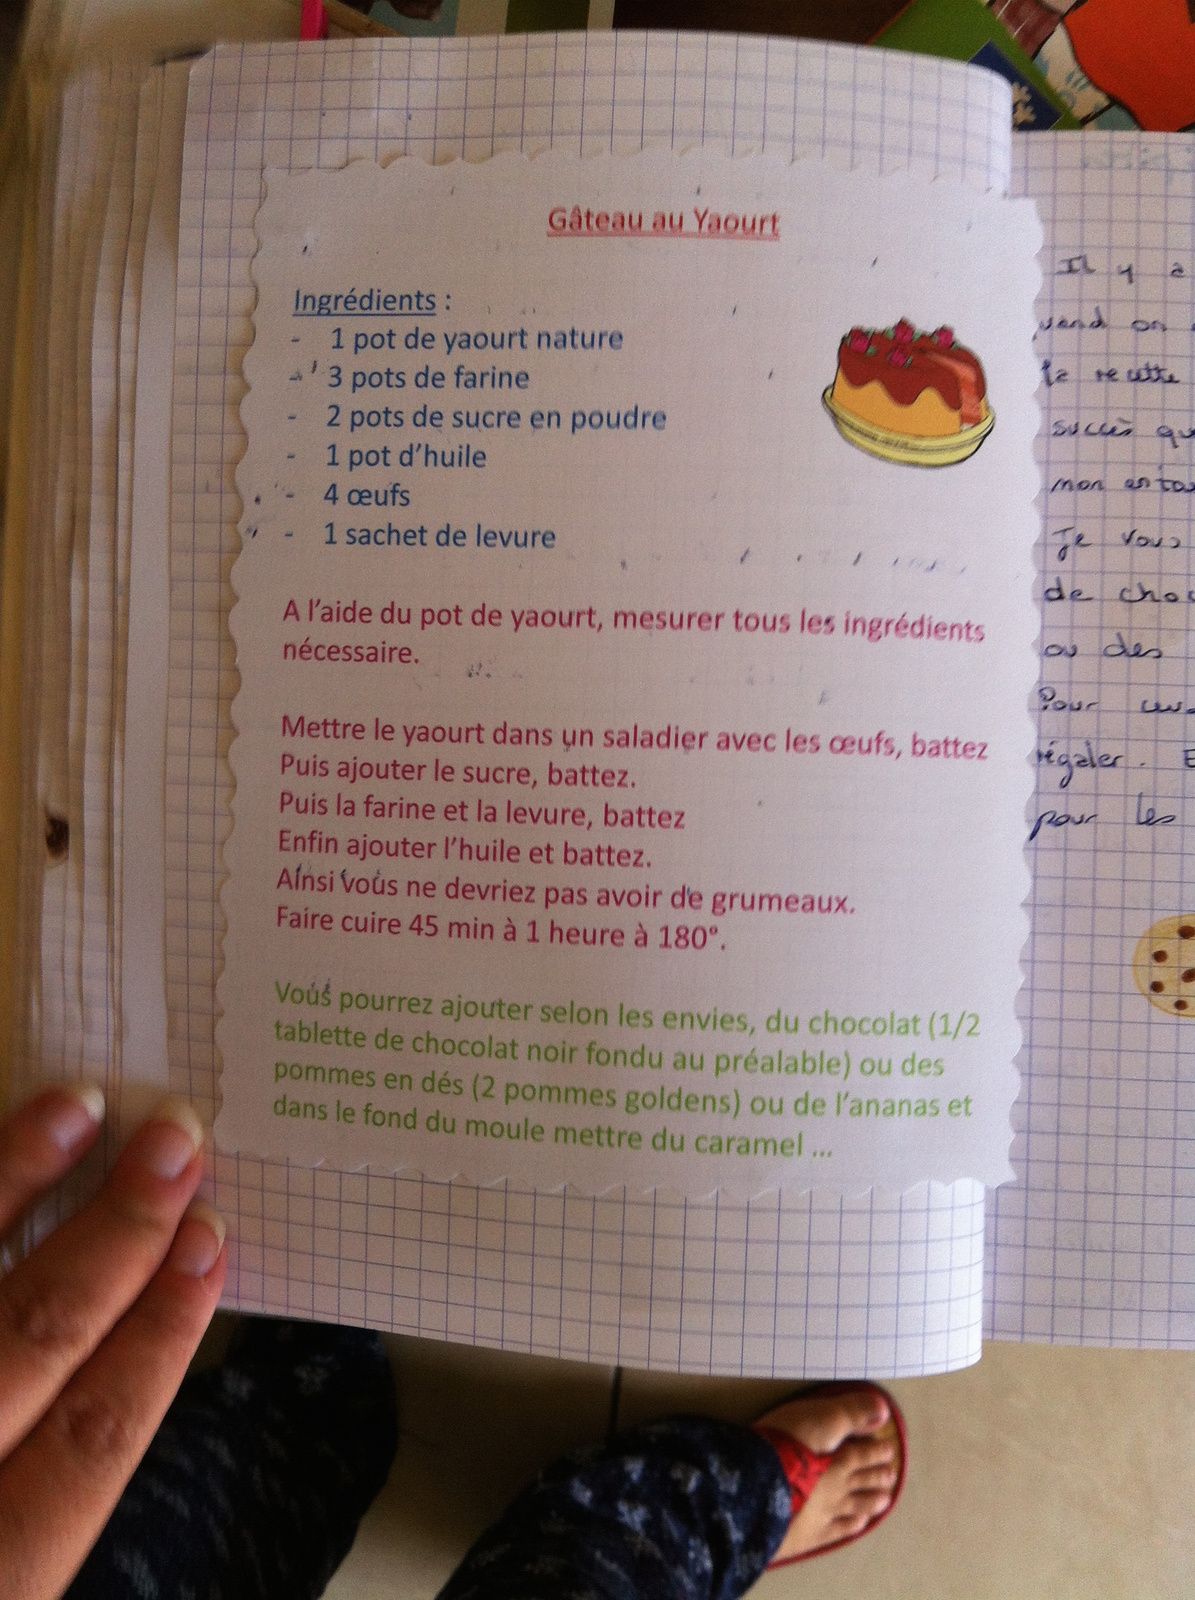 Gâteau au Yaourt
Ingrédients :
- 1 pot de yaourt nature
- 3 pots de farine
- 2 pots de sucre en poudre
- 1 pot d'huile
- 4 œufs
- 1 sachet de levure
A l'aide du pot de yaourt, mesurer tous les ingrédients
nécessaire.
Mettre le yaourt dans un saladier avec les œufs, battez
Puis ajouter le sucre, battez.
Puis la farine et la levure, battez
Enfin ajouter l'huile et battez.
Ainsi vous ne devriez pas avoir de grumeaux.
Faire cuire 45 min à 1 heure à 180°.
Vous pourrez ajouter selon les envies, du chocolat (1/2
tablette de chocolat noir fondu au préalable) ou des
pommes en dés (2 pommes goldens) ou de l'ananas et
dans le fond du moule mettre du caramel ...
Il y a
on
la recette
succès
mon
Je vous
de
ou des
Pour
régaler.
pour les